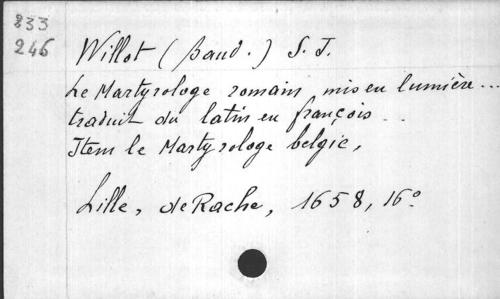 833
246
Willot (Baud.) S. J.
Le Martyrologe romain mis en lumière...
traduit du latin en françois..
Item le Martyrologe belgic,
Lille, de Rache, 1658, 16°